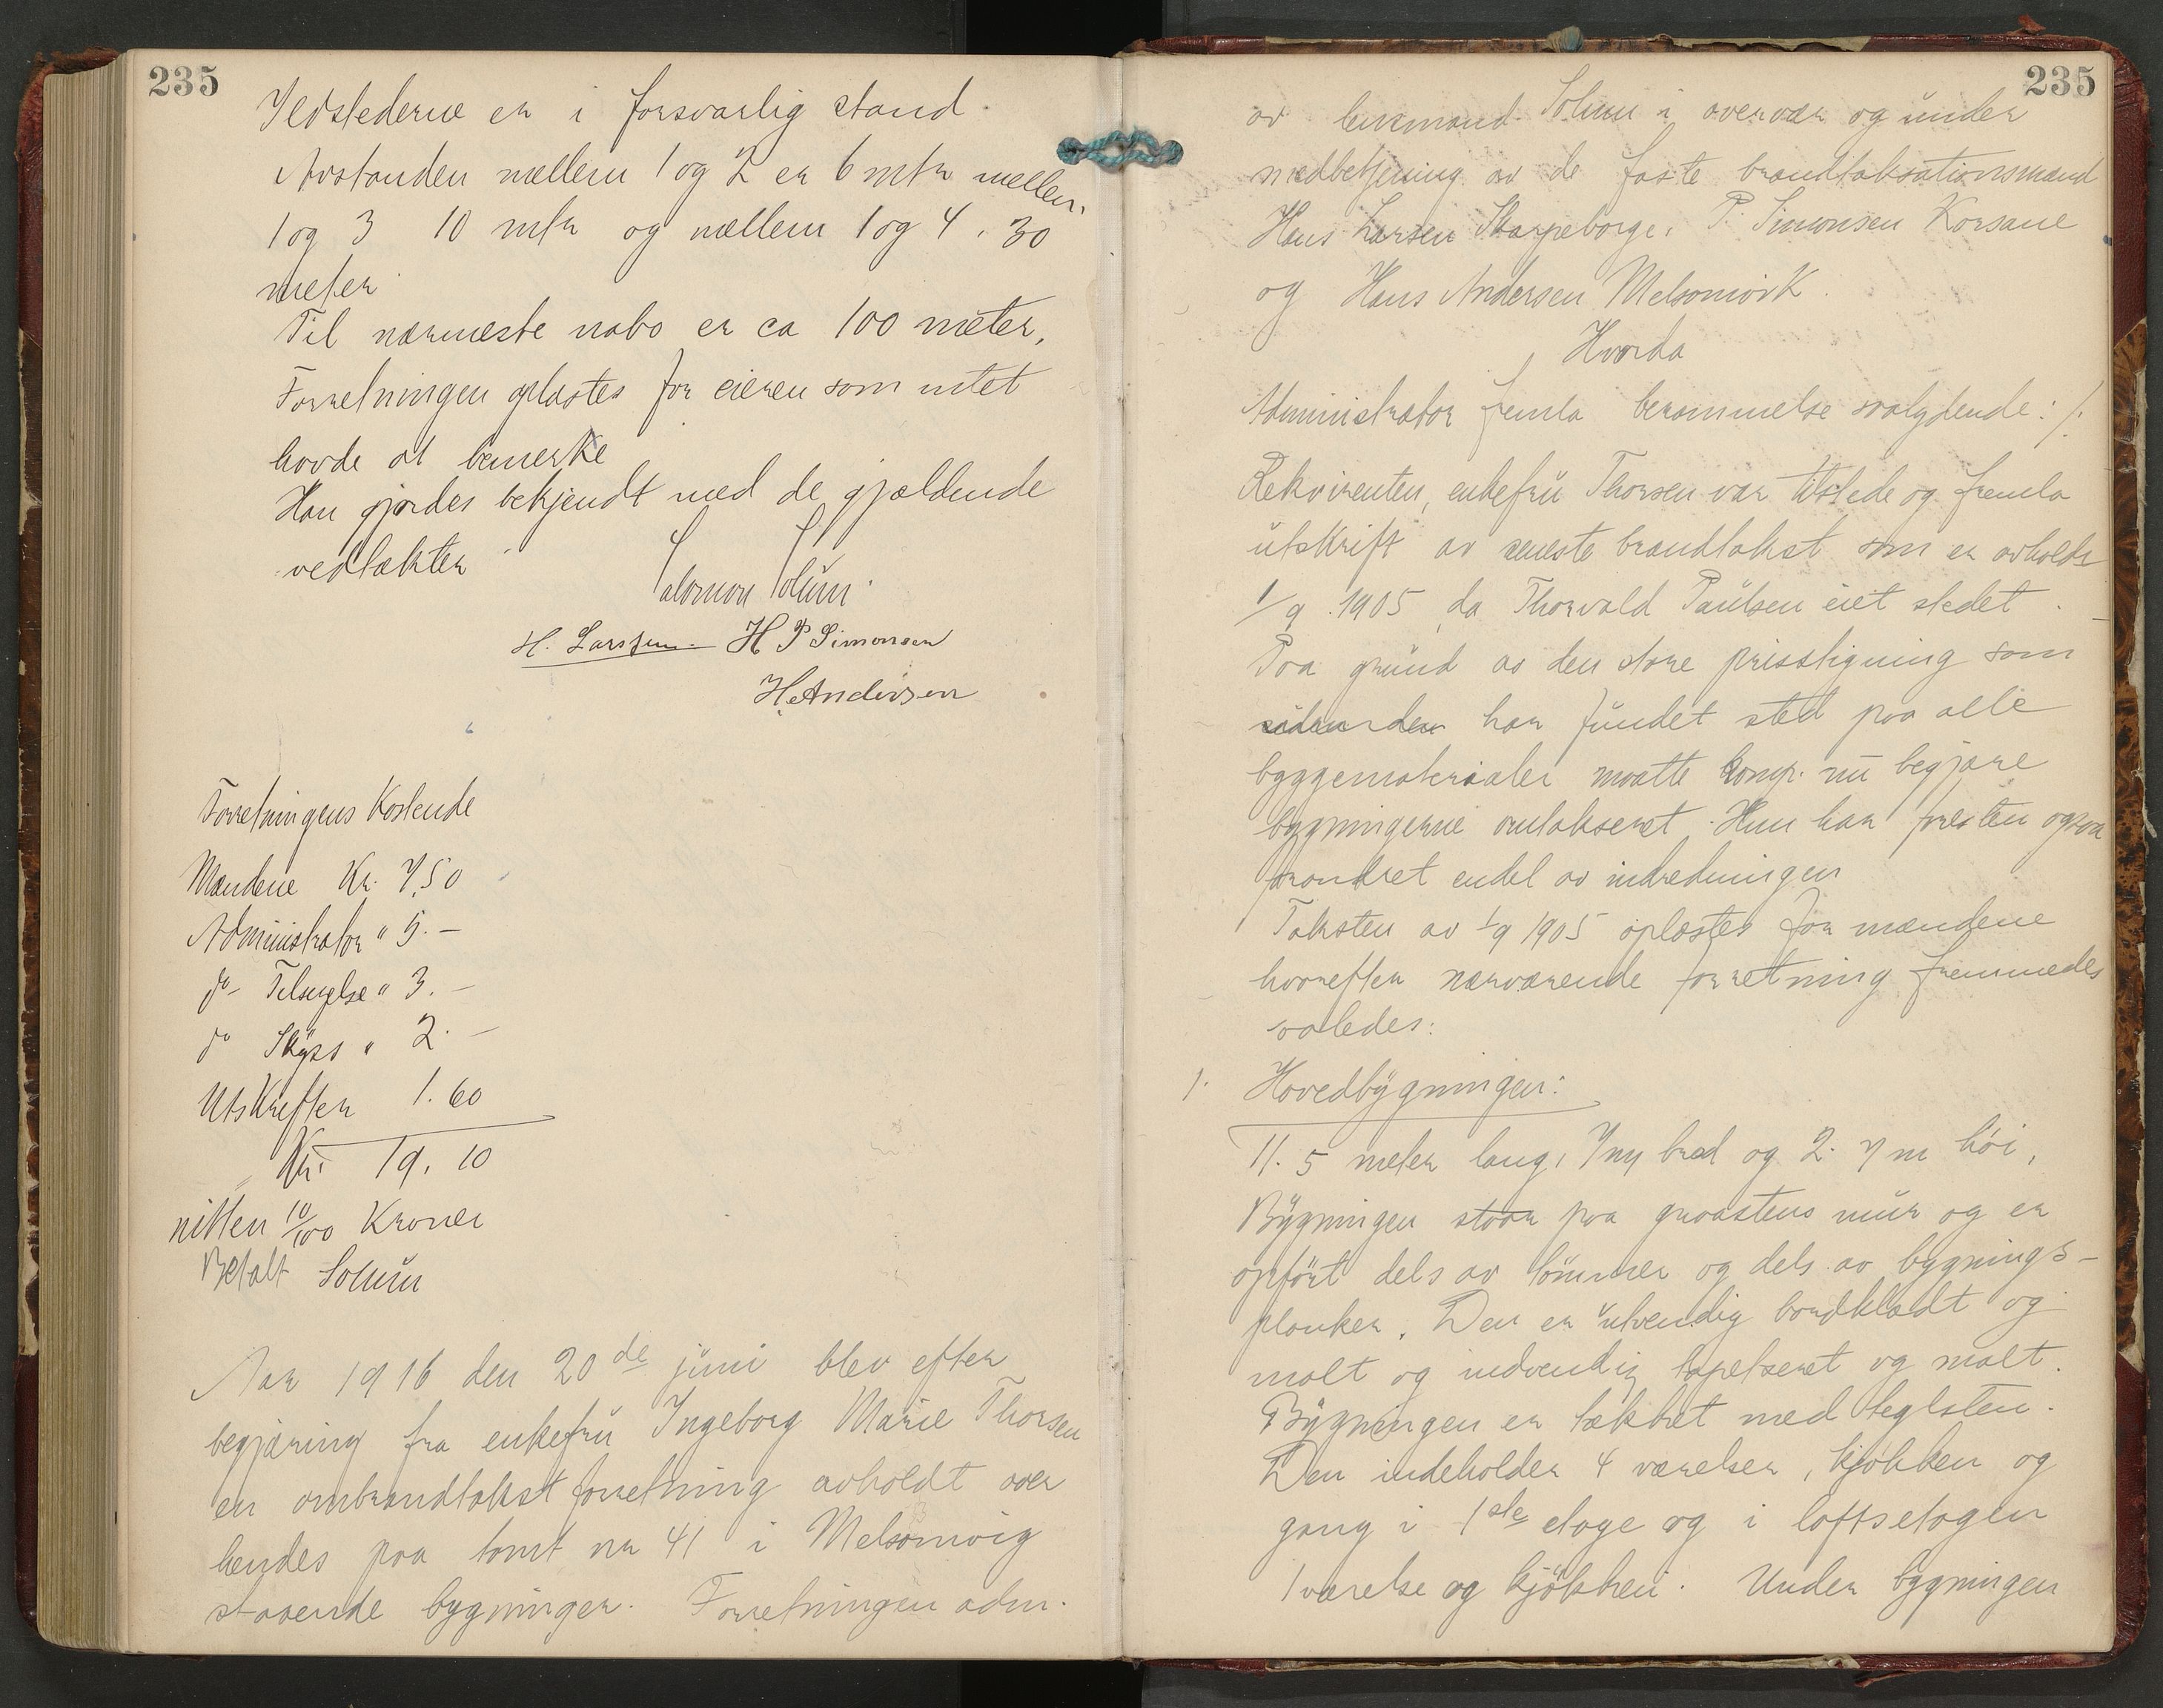 235
Ildstederne er i forsvarlig stand.
Avstanden mellem 1 og 2 er 6 mtr mellem
1 og 3 10 mtr og mellem 1 og 4. 30
meter
Til nærmeste nabo er ca 100 meter.
Forretningen oplæstes for eieren som intet
havde at bemerke
Han gjordes bekjendt med de gjældende
vedtækter
Salomon Solum.
H. Larssen. H P Simonsen
H. Andersen
Forretningens Kostende
Mændene Kr. 7,50
Administrator " 5. —
do Tilsigelse " 3. —
do Skyss " 2. —
Utskriften 1. 60
Kr. 19. 10
nitten 10/100 Kroner
Betalt Solum
Aar 1916 den 20de juni blev efter
begjæring fra enkefru Ingeborg Marie Thorsen
en ombrandtakstforretning avholdt over
hendes paa tomt nr 41 i Melsomvig
staaende bygninger. Forretningen adm.
235
av lensmand Solum i overvær og under
medbetjening av de faste brandtaksationsmænd
Hans Larsen Skarpeborge, P. Simonsen Korsane
og Hans Andersen Melsomvik.
Hvorda
Administrator fremla berammelse saalydende: /.
Rekvirenten, enkefru Thorsen var tilstede og fremla
utskrift av seneste brandtakst som er avholdt
1/9 1905, da Thorvald Paulsen eiet stedet.
Paa grund av den store prisstigning som
har fundet sted paa alle
byggematerialer maatte komp. nu begjære
bygningerne omtakseret. Hun har foresten ogsaa
forandret endel av indredningen
Taksten av 1/9 1905 oplæstes for mændene
hvorefter nærværende forretning fremmedes
saaledes:
1. Hovedbygningen:
11.5 meter lang, 7 m bred og 2.7 m høi,
Bygningen staar paa graastens mur og er
opført dels av tømmer og dels av bygnings-
planker. Den er utvendig bordklædt og
malt og indvendig tapetseret og malt.
Bygningen er tækket med teglsten.
Den indeholder 4 værelser, kjøkken og
gang i 1ste etage og i loftsetagen
1 værelse og kjøkken. Under bygningen